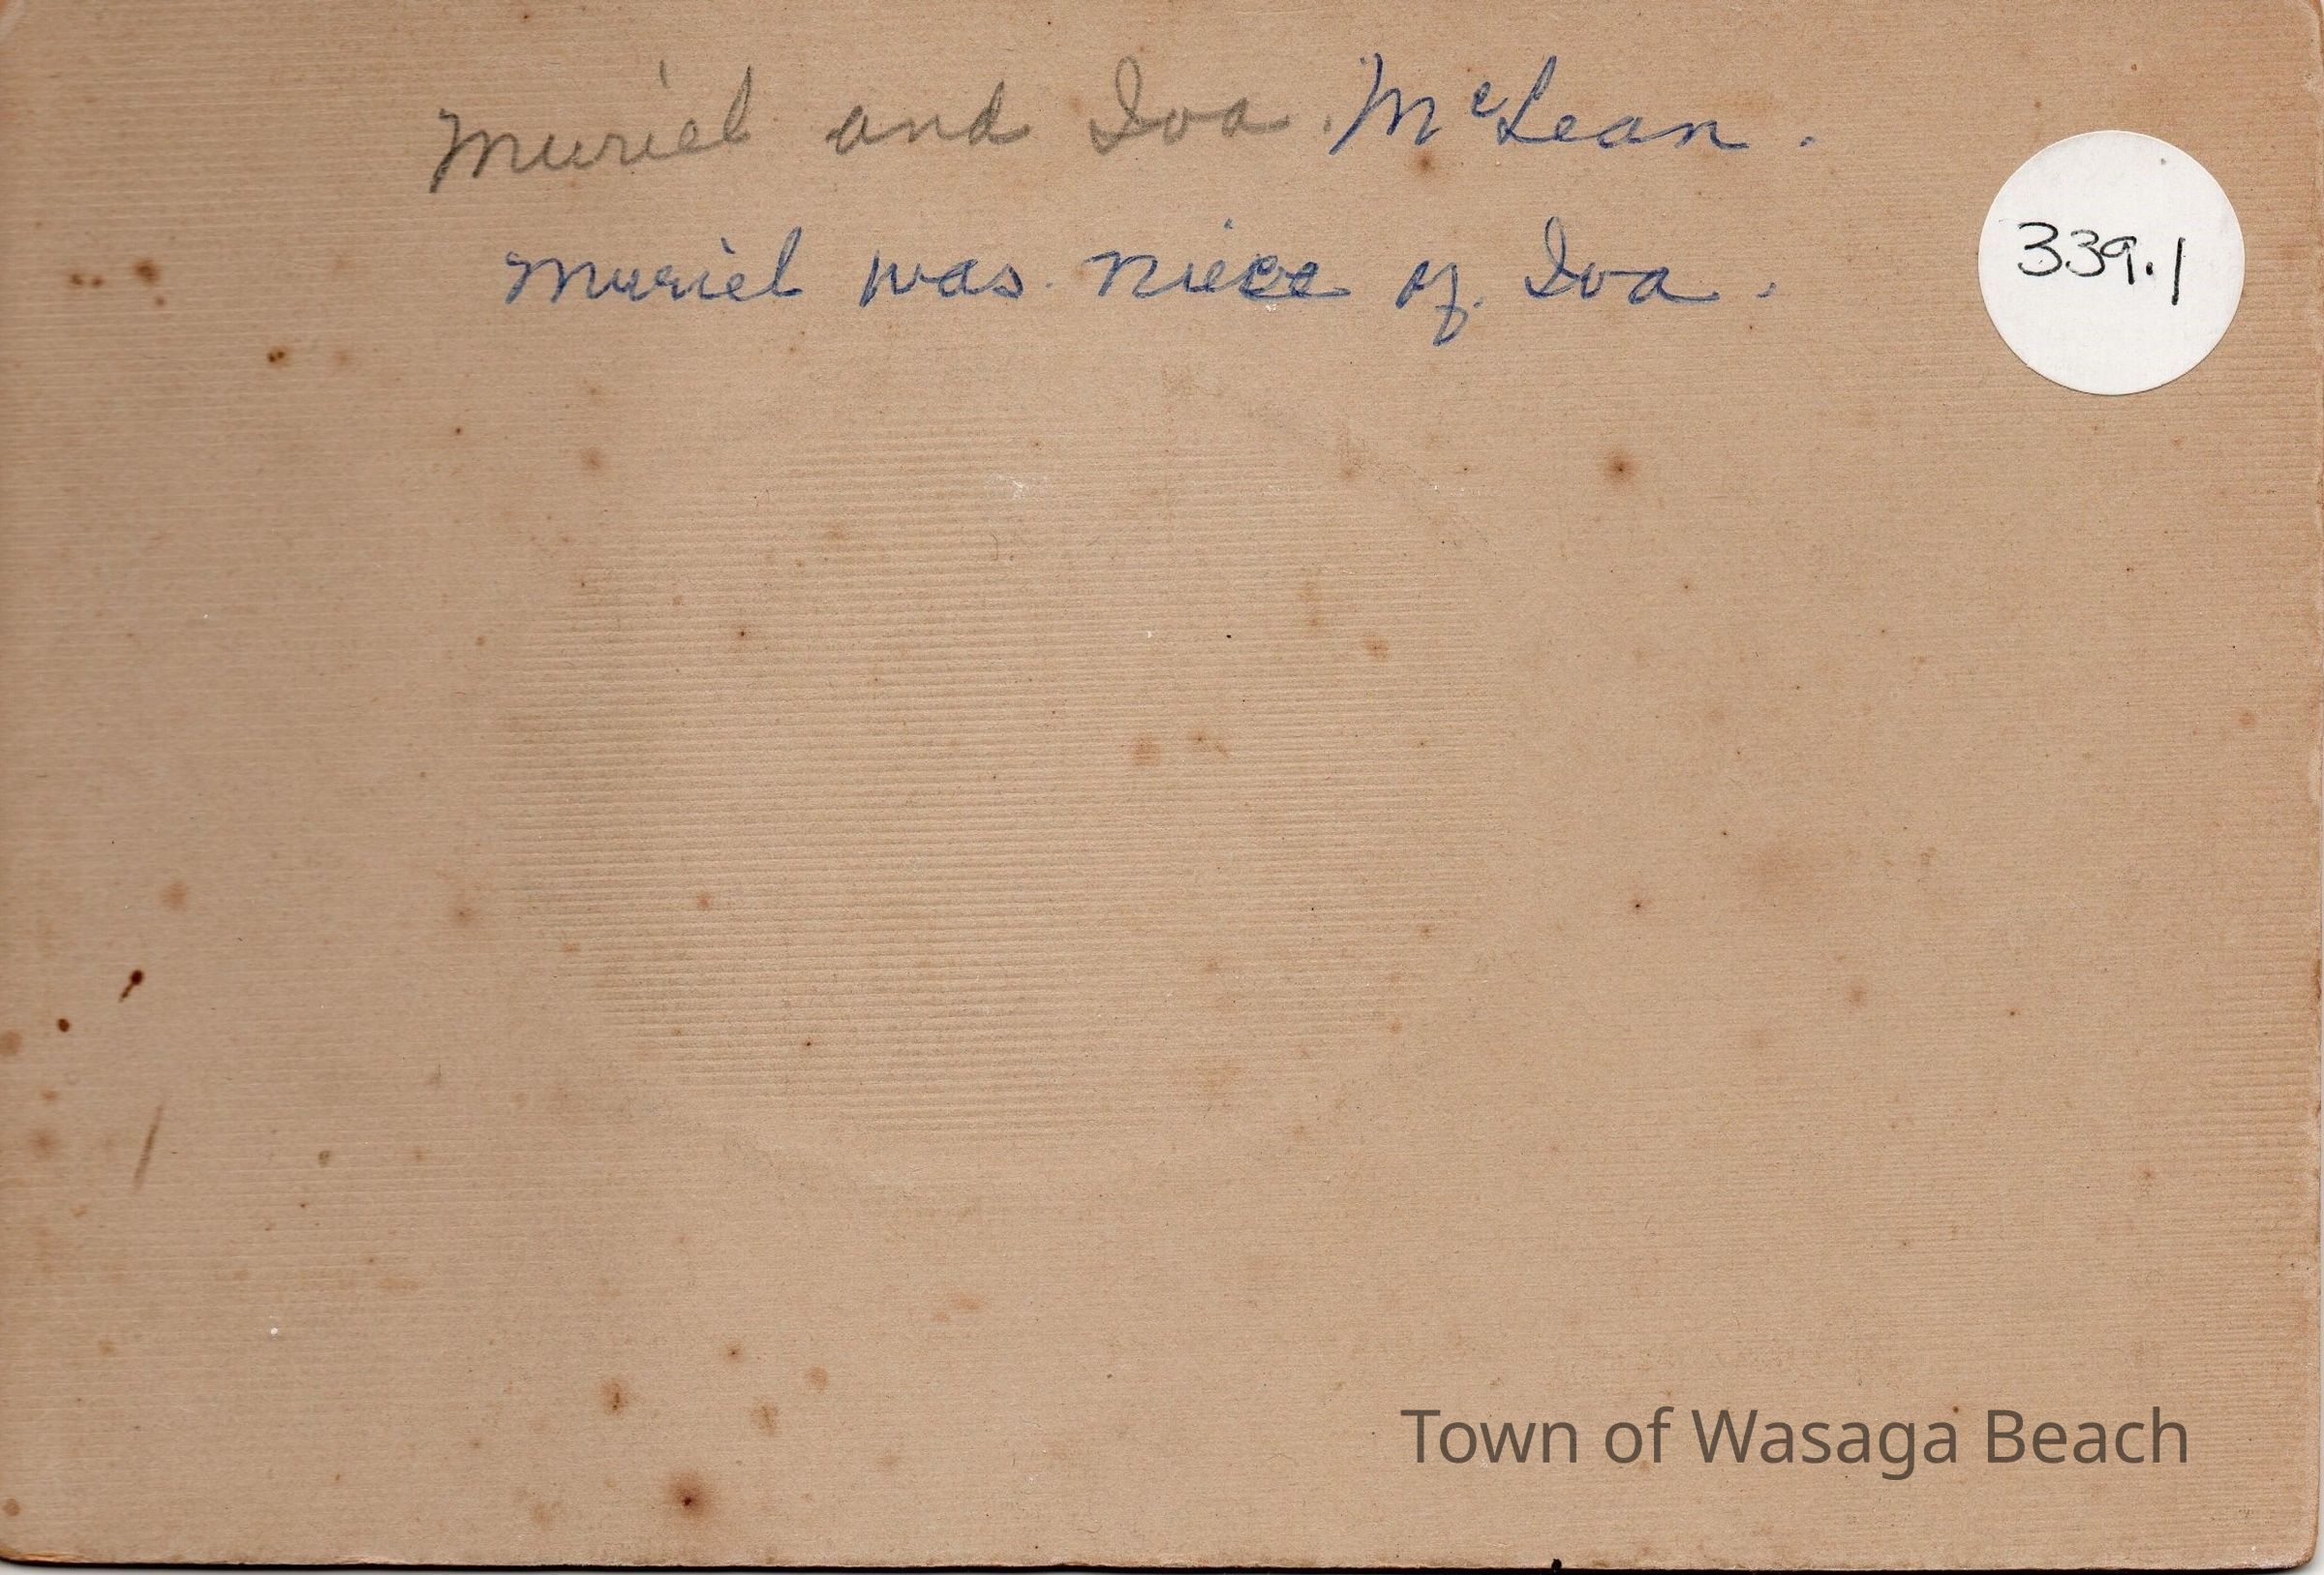 Muriel and Iva. McLean.
Muriel was niece of Iva.
339.1
Town of Wasaga Beach